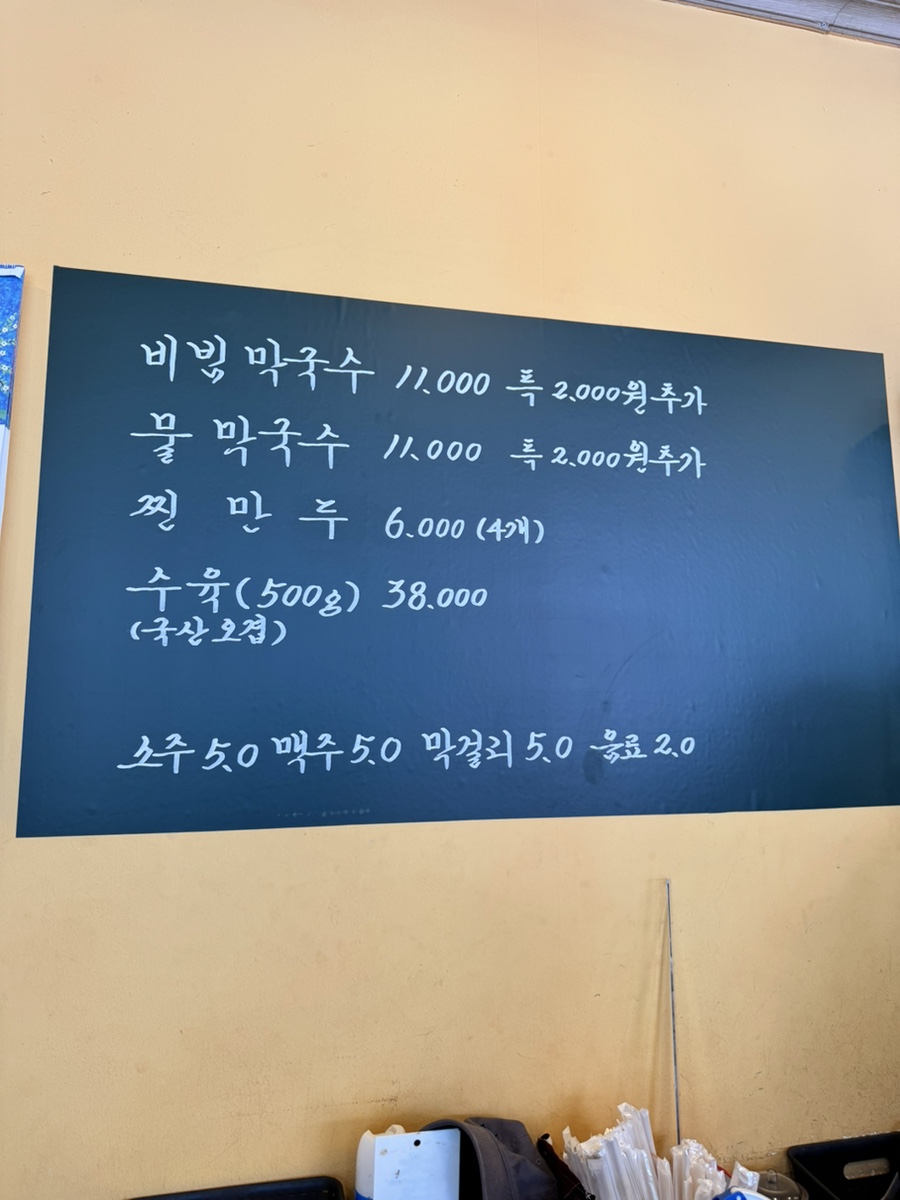 비빔 막국수 11.000 특 2.000원추가
물 막국수 11.000 특 2.000원추가
찐 만 두 6.000 (4개)
수육(500g) 38.000
(국산오겹)
소주 5.0 맥주 5.0 막걸리 5.0 음료 2.0